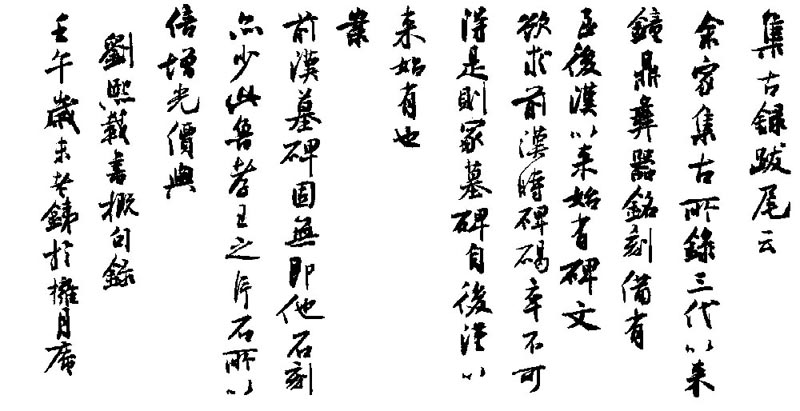 集古録跋尾云
余家集古所録三代以来
鐘鼎彝器銘刻備有
至後漢以来始有碑文
欲求前漢時碑碣卒不可
得是則冢墓碑自後漢以
来始有也
案
前漢墓碑固無即他石刻
亦少此魯孝王之片石所以
倍增光價與
劉熙載書概句録
壬午歲末老銕於擁月齋